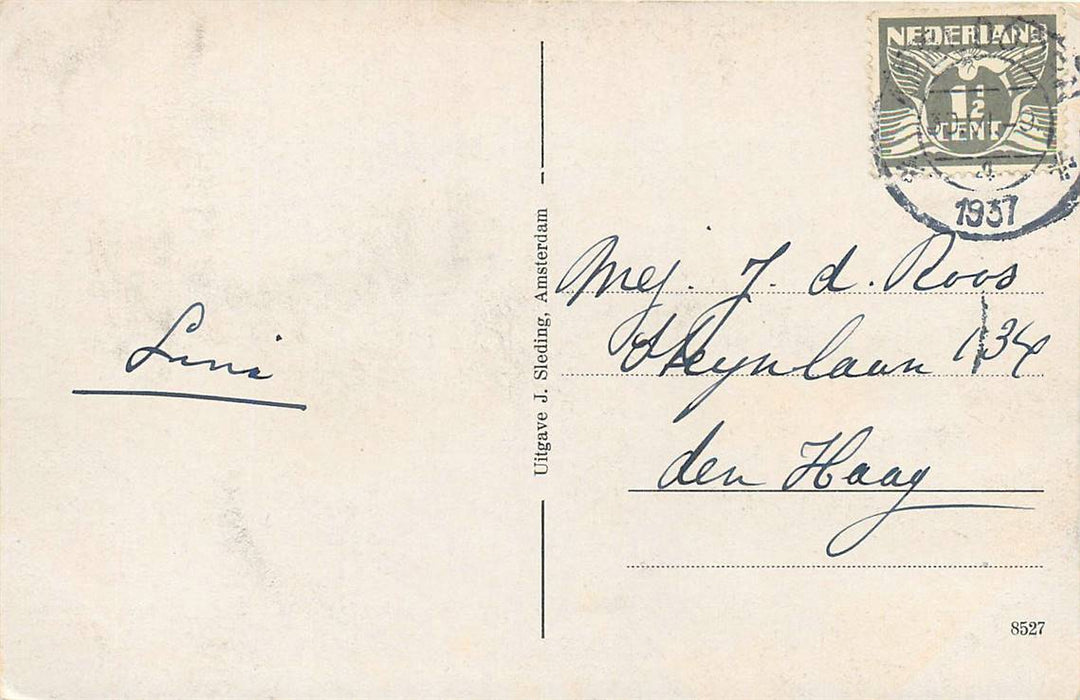 NEDERLAND
1½
CENT
1937
Uitgave J. Sleding, Amsterdam
Mej. J. d. Roos
Steynlaan 134
den Haag
8527